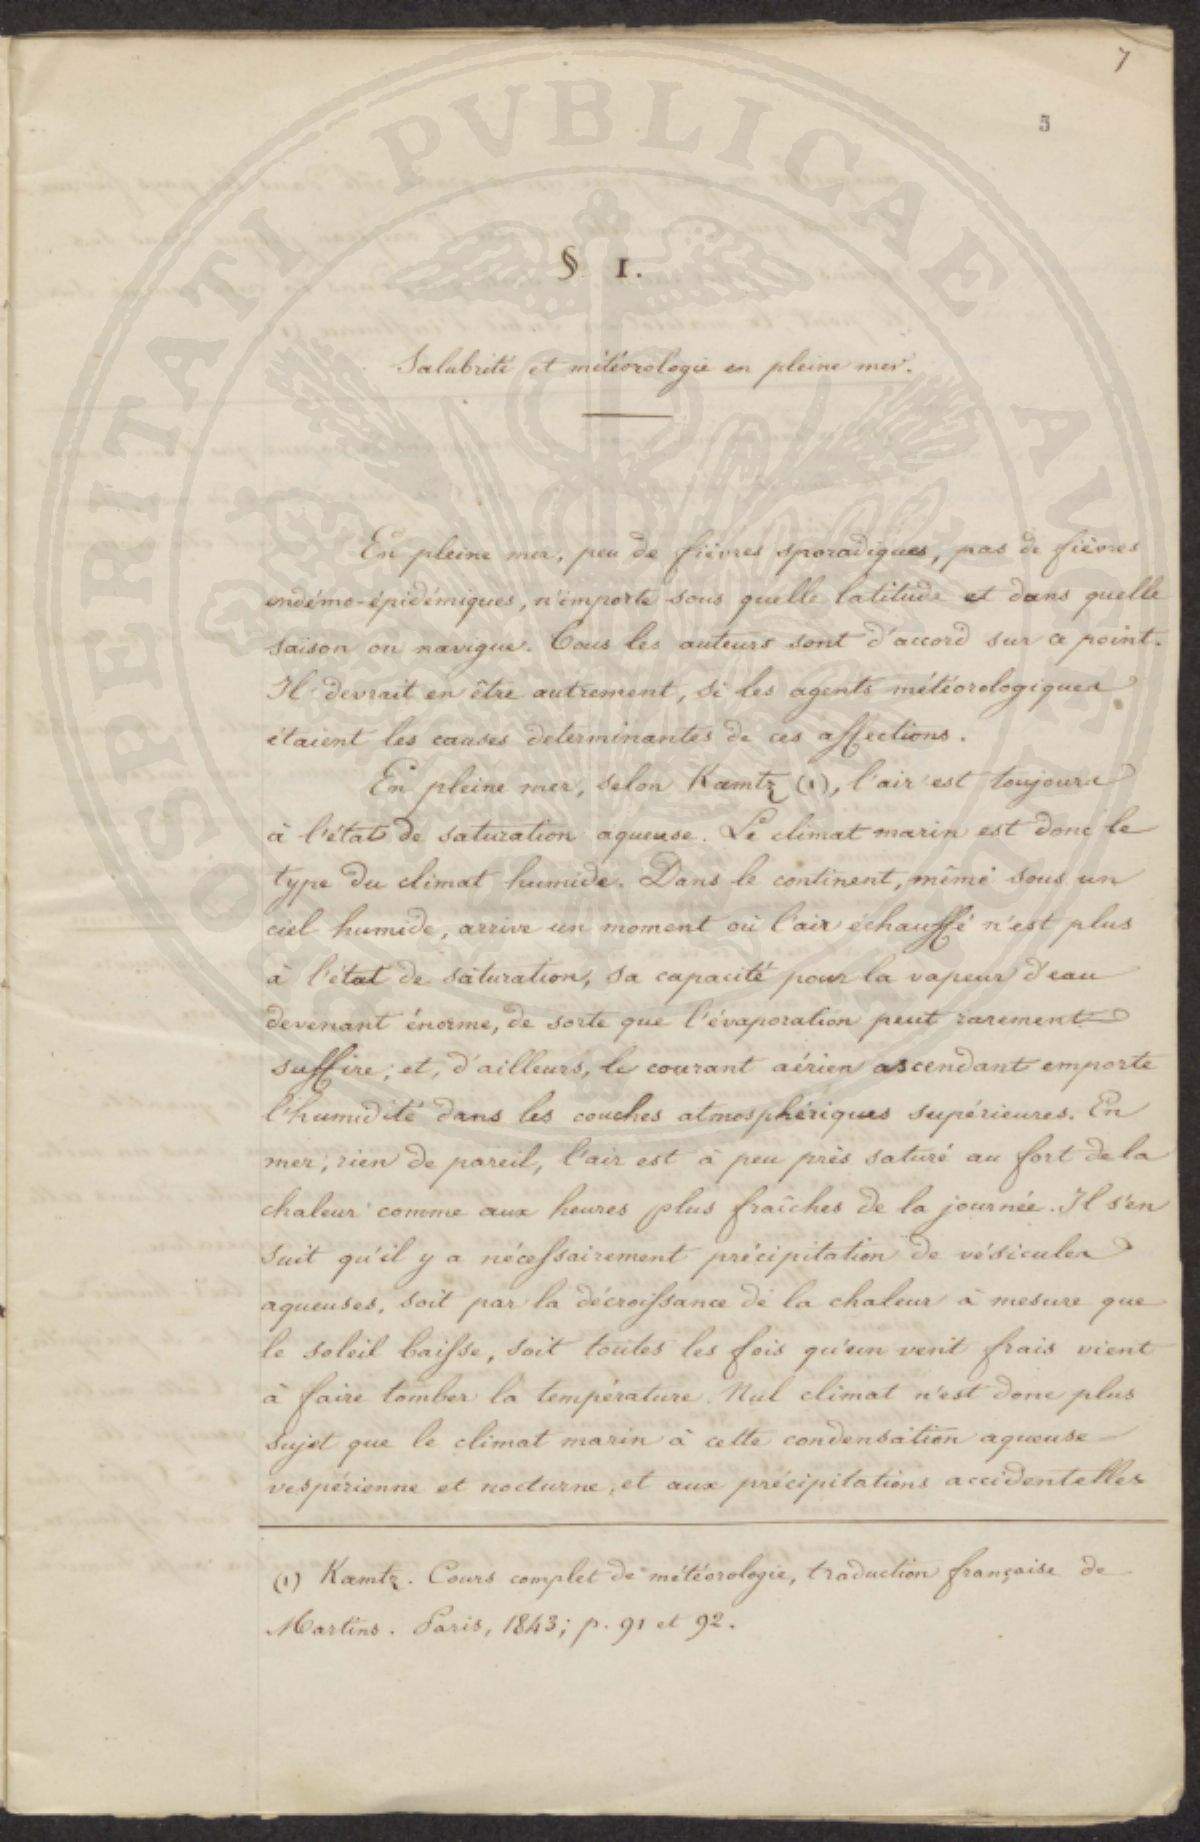 7
5
§ I.
Salubrité et météorologie en pleine mer.
En pleine mer, peu de fièvres sporadiques, pas de fièvres
endémo-épidémiques, n'importe sous quelle latitude et dans quelle
saison on navigue. Tous les auteurs sont d'accord sur ce point.
Il devrait en être autrement, si les agents météorologiques
étaient les causes determinantes de ces affections.
En pleine mer, selon Kæmtz (1), l'air est toujours
à l'état de saturation aqueuse. Le climat marin est donc le
type du climat humide. Dans le continent, même sous un
ciel humide, arrive un moment où l'air échauffé n'est plus
à l'état de saturation, sa capacité pour la vapeur d'eau
devenant énorme, de sorte que l'évaporation peut rarement
suffire; et, d'ailleurs, le courant aérien ascendant emporte
l'humidité dans les couches atmosphériques supérieures. En
mer, rien de pareil, l'air est à peu près saturé au fort de la
chaleur comme aux heures plus fraîches de la journée. Il s'en
suit qu'il y a nécessairement précipitation de vésicules
aqueuses, soit par la décroissance de la chaleur à mesure que
le soleil baisse, soit toutes les fois qu'un vent frais vient
à faire tomber la température. Nul climat n'est donc plus
sujet que le climat marin à cette condensation aqueuse
vespérienne et nocturne, et aux précipitations accidentelles
(1) Kæmtz. Cours complet de météorologie, traduction française de
Martins. Paris, 1843; p. 91 et 92.
PROSPERITATI PUBLICAE AUGENDAE